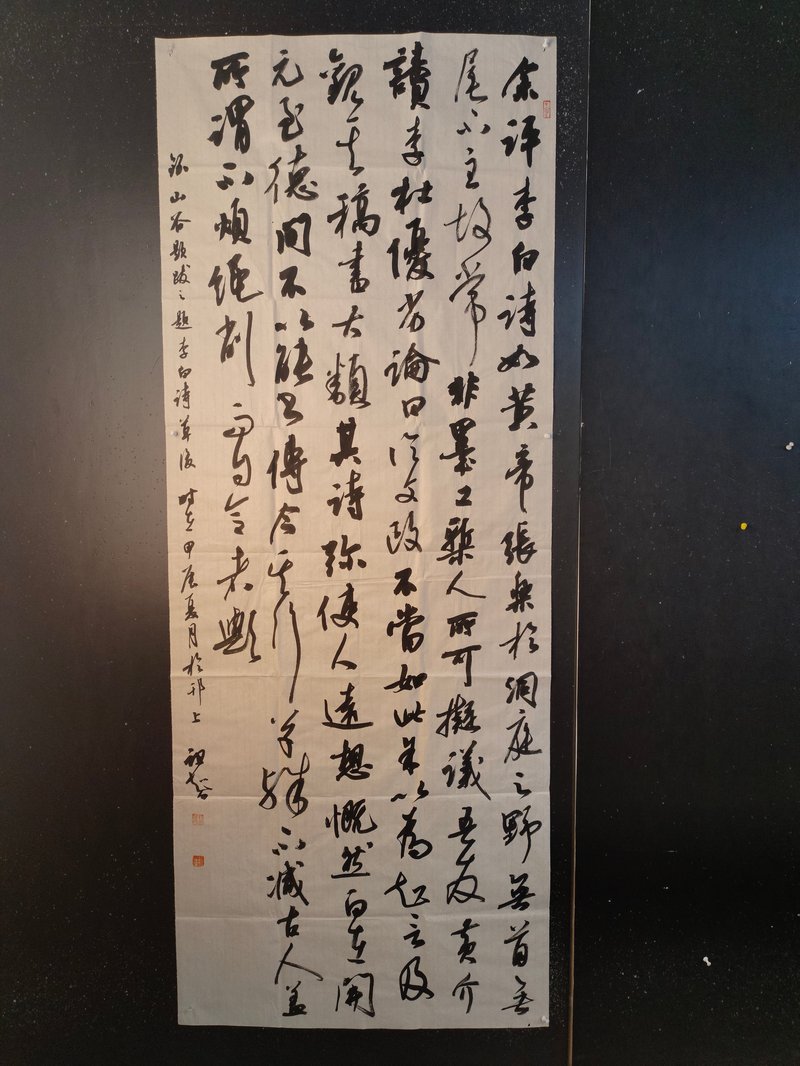 余評李白詩如黄帝張樂於洞庭之野無首無
尾不主故常非墨工槧人所可擬議吾友黄介
讀李杜優劣論曰論文政不當如此余以為知言及
觀其稿書大類其詩彌使人遠想慨然白在開
元至德間不以能書傳今其行草殊不減古人蓋
所謂不煩繩削而自合者歟
錄山谷題跋之題李白詩草後 時在甲辰夏月於邗上